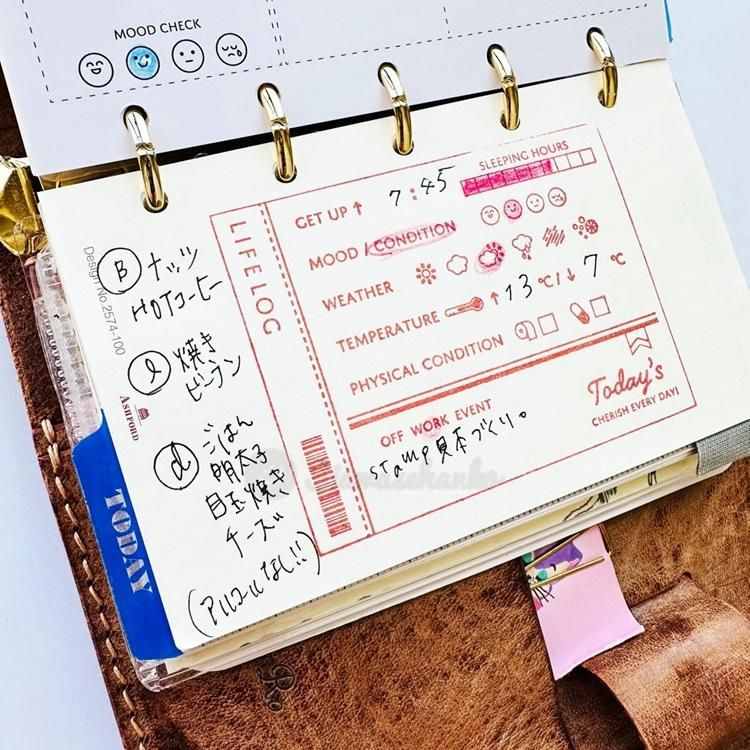 MOOD CHECK
Design No.2574-100
ASHFORD
TODAY
B ナッツ
HOTコーヒー
l 焼き
ビーフン
d ごはん
明太子
目玉焼き
チーズ
(アルコールなし!!)
LIFE LOG
GET UP ↑ 7:45
SLEEPING HOURS
MOOD / CONDITION
WEATHER
TEMPERATURE ↑ 13 ℃ / ↓ 7 ℃
PHYSICAL CONDITION
OFF WORK EVENT
stamp見本づくり。
Today's
CHERISH EVERY DAY!